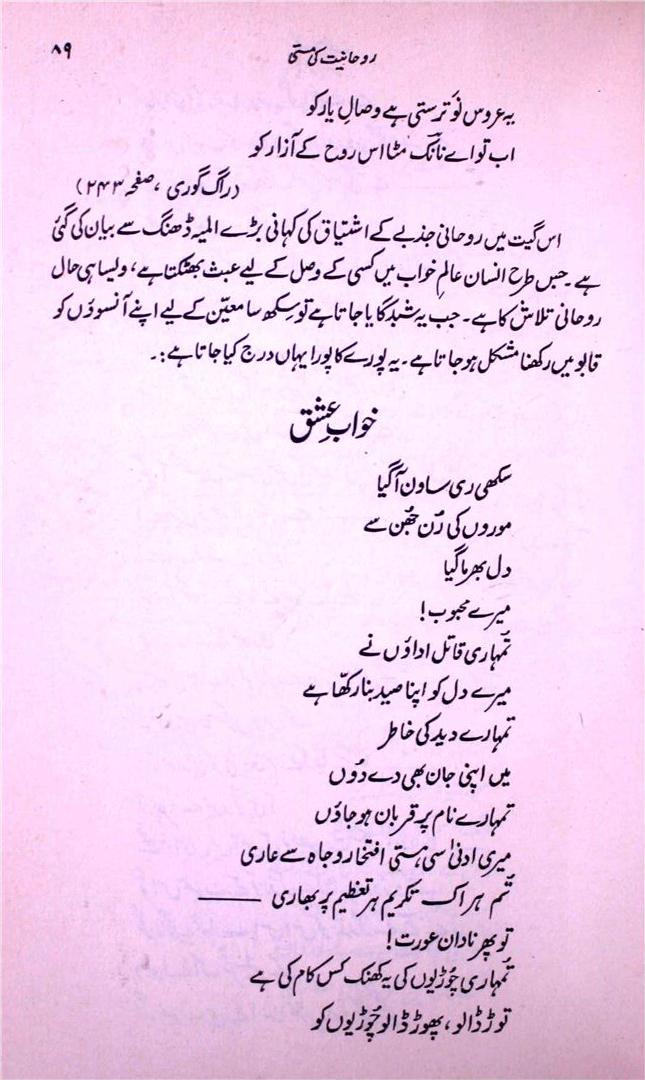 روحانیت کی مستی ۸۹
یہ عروسِ نَو ترستی ہے وصالِ یار کو
اب تو اے نانک مٹا اس روح کے آزار کو
(راگ گوری، صفحہ ۲۴۳)
اس گیت میں روحانی جذبے کے اشتیاق کی کہانی بڑے المیہ ڈھنگ سے بیان کی گئی
ہے۔ جس طرح انسان عالمِ خواب میں کسی کے وصل کے لیے عبث بھٹکتا ہے، ویسا ہی حال
روحانی تلاش کا ہے۔ جب یہ شبد گایا جاتا ہے تو سِکھ سامعیّن کے لیے اپنے آنسوؤں کو
قابو میں رکھنا مشکل ہو جاتا ہے۔ یہ پورے کا پورا یہاں درج کیا جاتا ہے:۔
خوابِ عشق
سکھی ری ساون آ گیا
موروں کی رُن جھُن سے
دل بھرما گیا
میرے محبوب!
تمہاری قاتل اداؤں نے
میرے دل کو اپنا صید بنا رکھّا ہے
تمہارے دید کی خاطر
میں اپنی جان بھی دے دُوں
تمہارے نام پر قربان ہو جاؤں
میری ادنیٰ سی ہستی افتخار و جاہ سے عاری
تُم ہر اک تکریم ہر تعظیم پر بھاری ——
تو پھر نادان عورت!
تمہاری چُوڑیوں کی یہ کھنک کس کام کی ہے
توڑ ڈالو، پھوڑ ڈالو چُوڑیوں کو